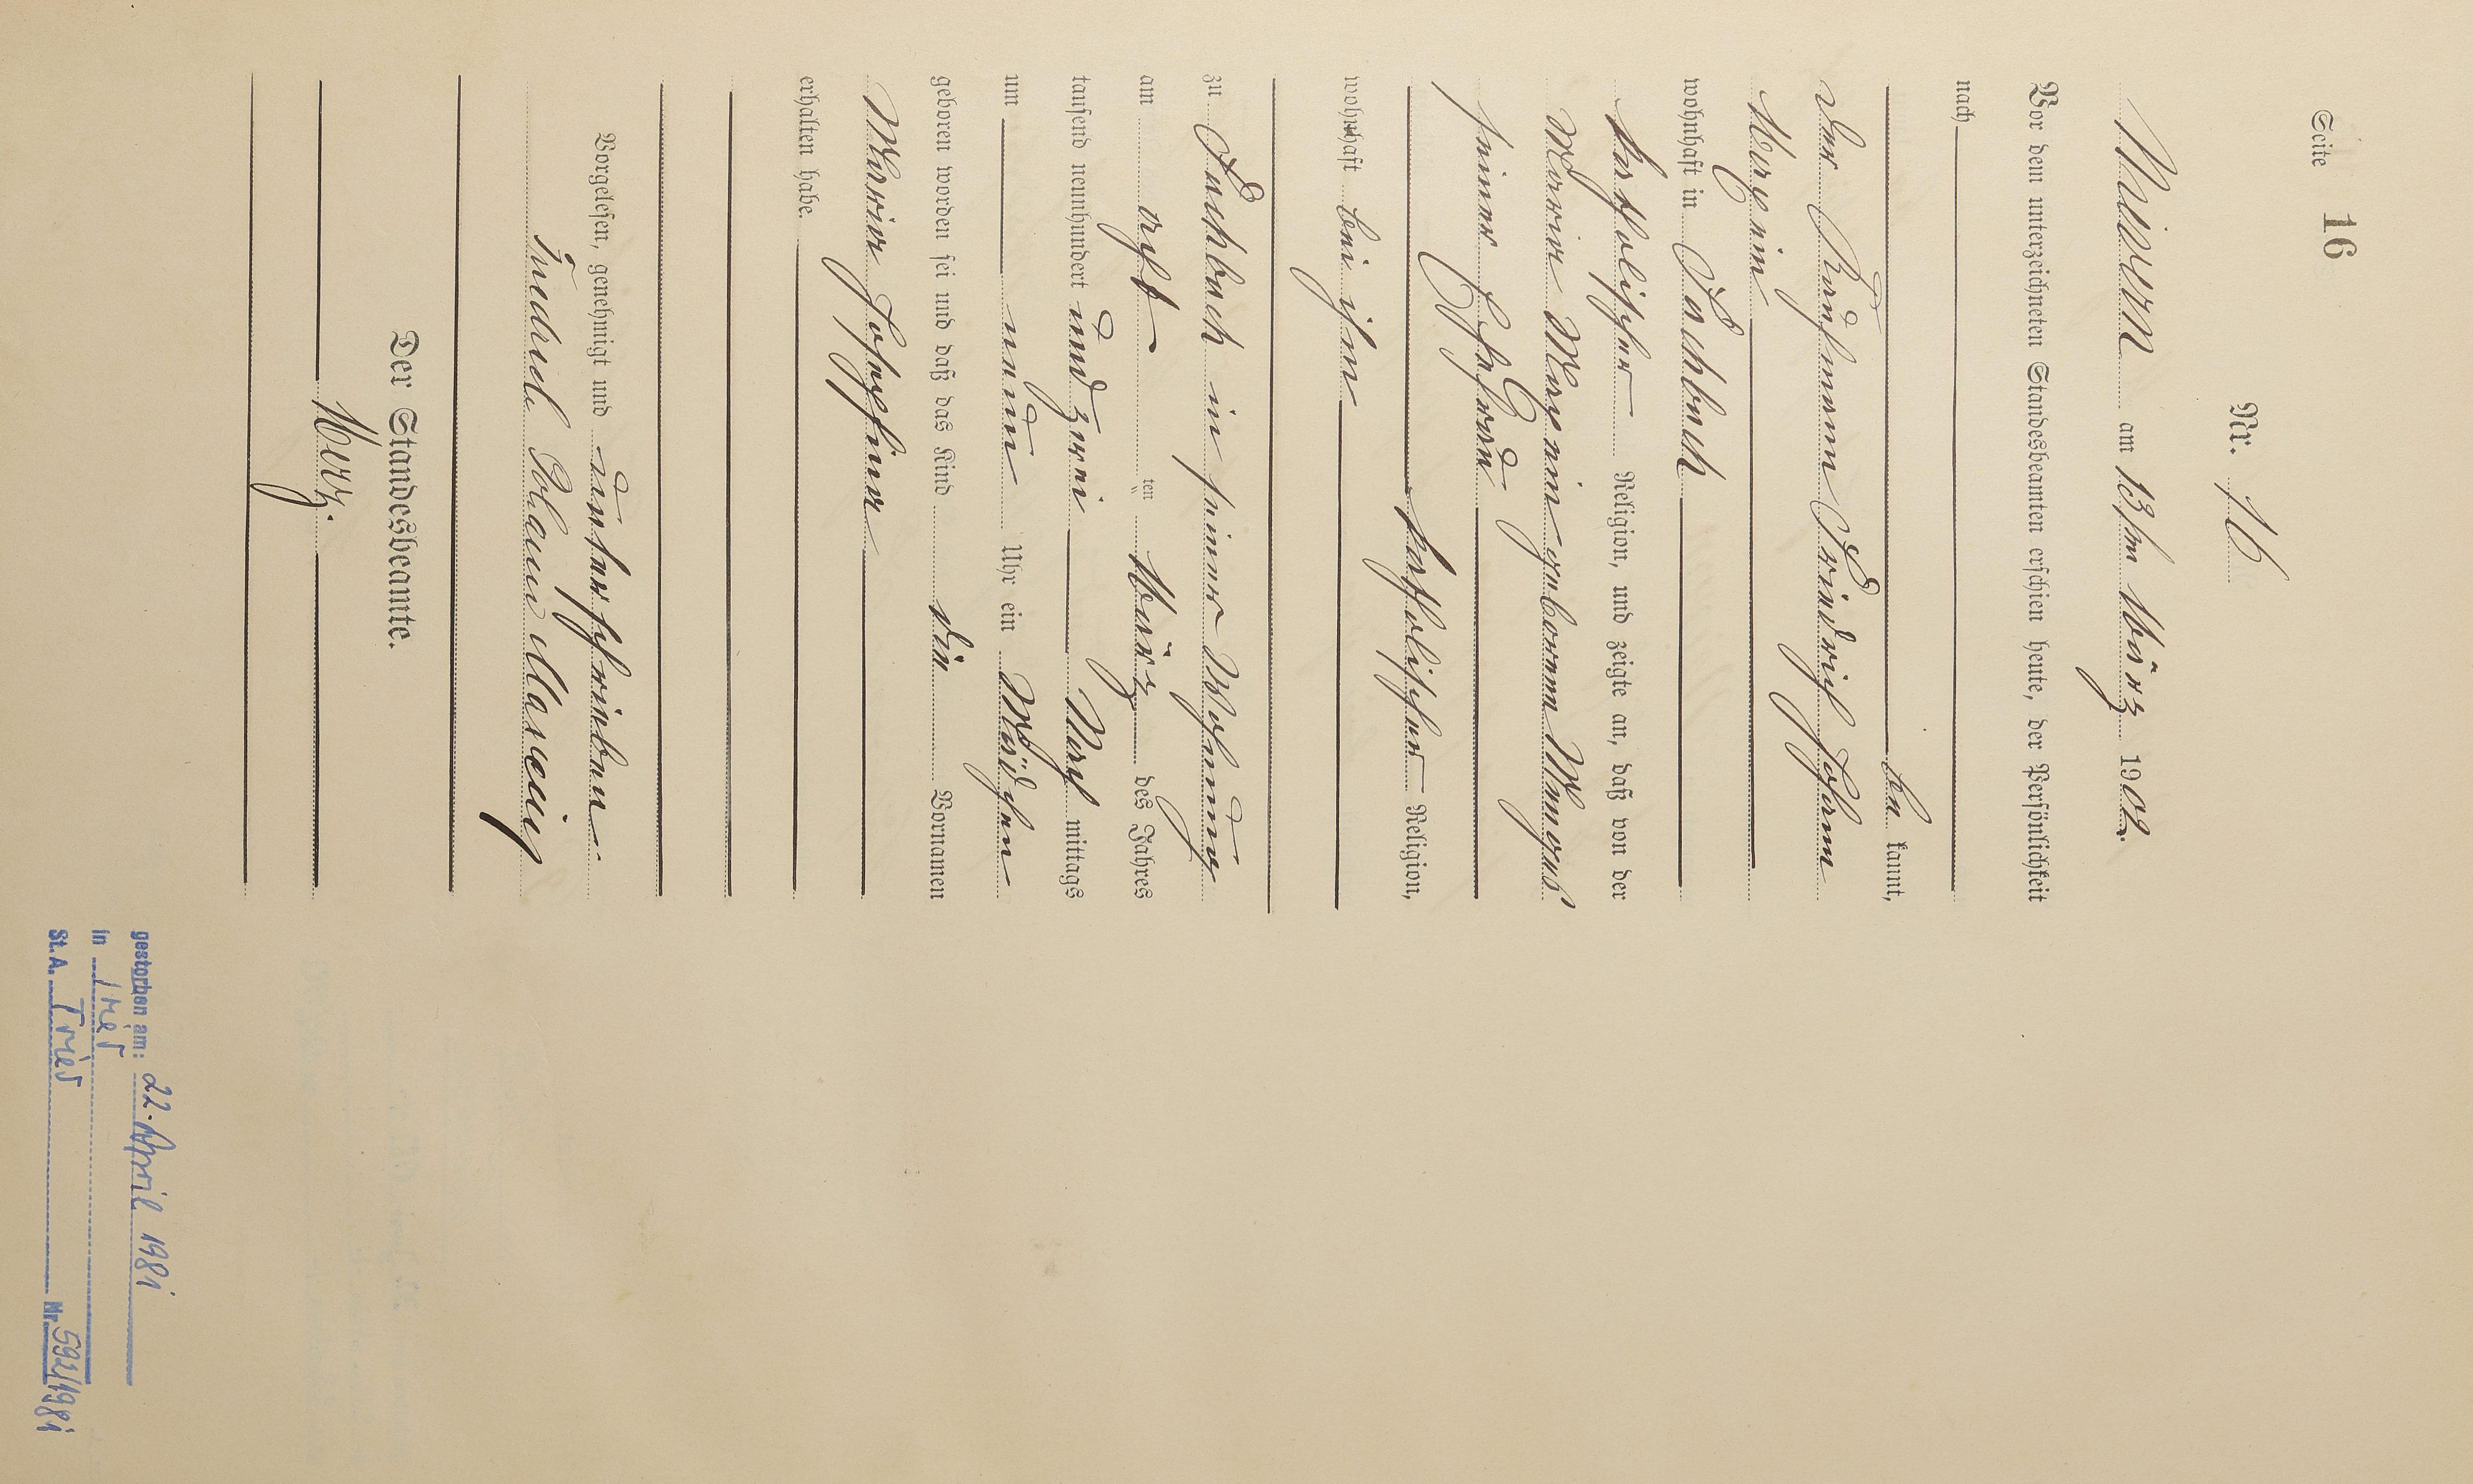 Seite 16
Nr. 16
am 13ten März 1902.
Vor dem unterzeichneten Standesbeamten erschien heute, der Persönlichkeit
nach
be kannt,
der Kaufmann Friedrich Johann
Maxein
wohnhaft in Fachbach
katholischer Religion, und zeigte an, daß von der
Maria Maxein geborenen
seiner Ehefrau
katholischer Religion,
wohnhaft bei ihm
zu Fachbach in seiner Wohnung
am acht ten März des Jahres
tausend neunhundert und zwei Nach mittags
um neun Uhr ein Mädchen
geboren worden sei und daß das Kind die Vornamen
Maria Josefine
erhalten habe.
Vorgelesen, genehmigt und unterschrieben.
Friedrich Johann Maxein
Der Standesbeamte.
Merz.
gestorben am: 22. April 1981
in Trier
St.A. Trier Nr. 592/1981